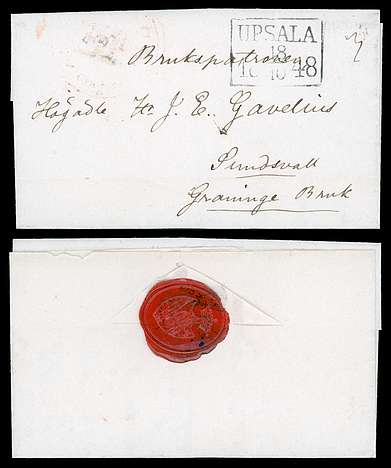 UPSALA
18
10 48
Brukspatronen
Högädle Hr J. E. Gavelius
Sundsvall
Graninge Bruk